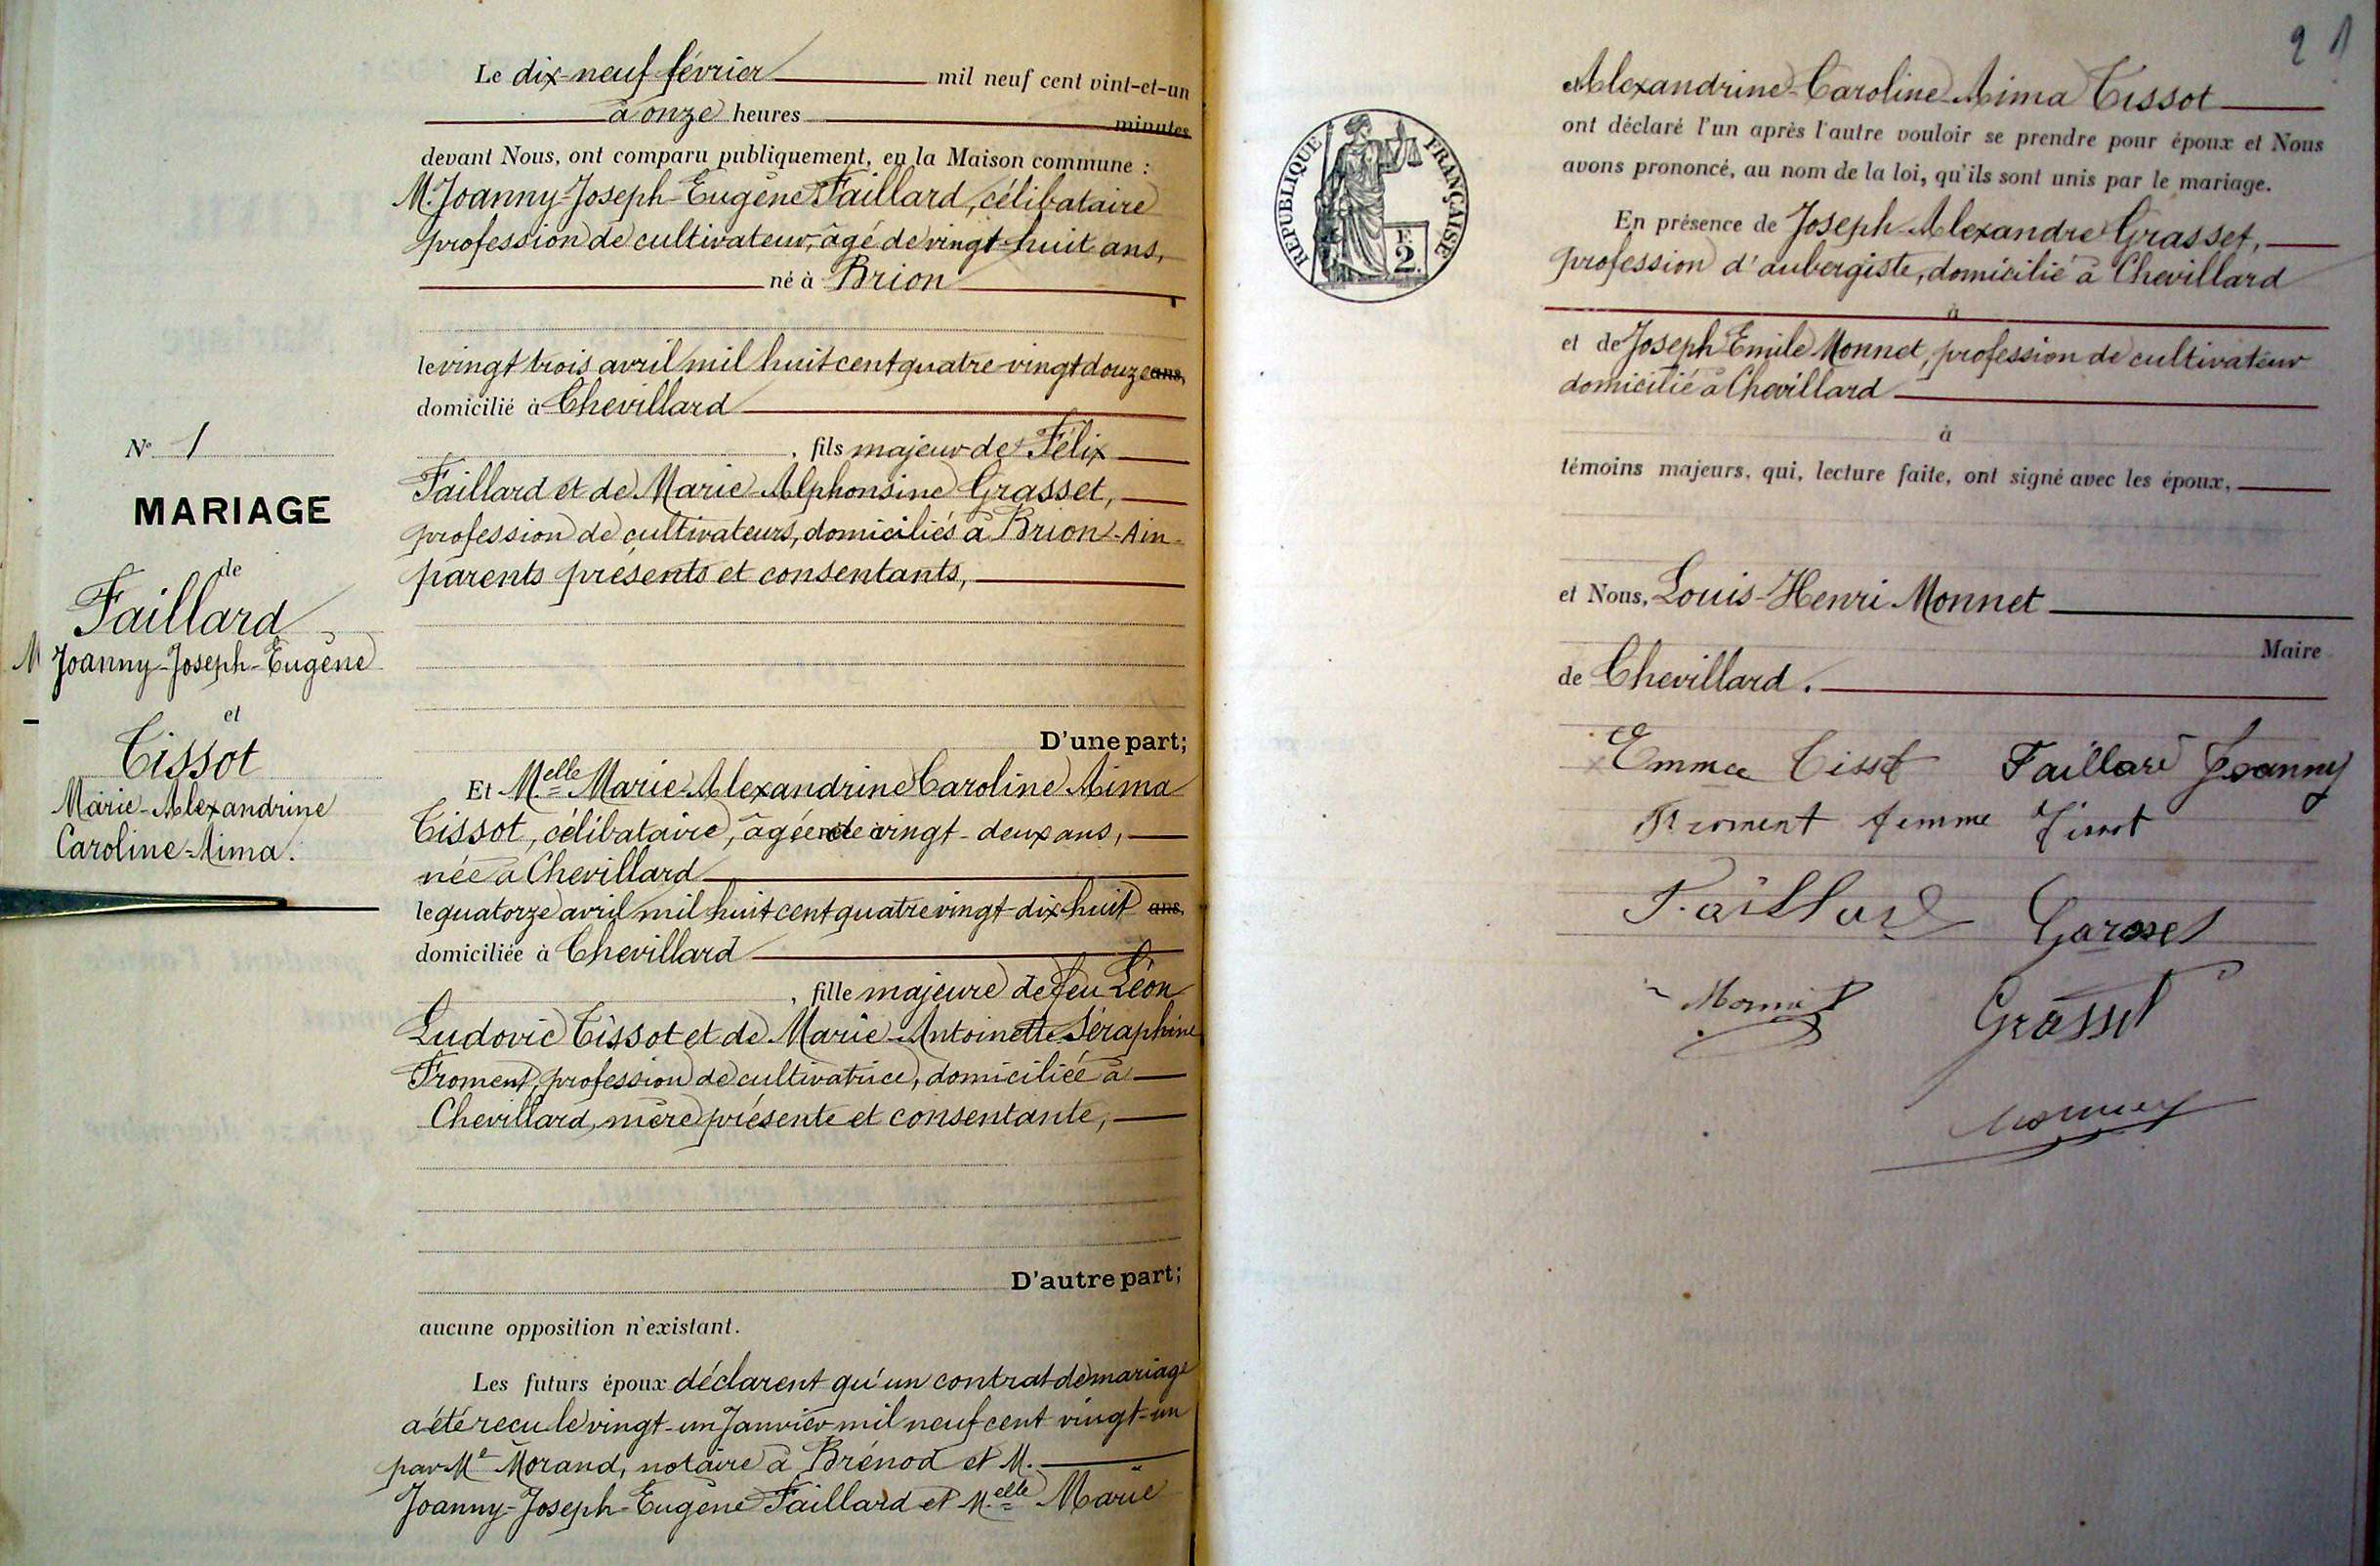 N° 1
MARIAGE
de
Faillard
M Joanny-Joseph-Eugène
et
Tissot
Marie-Alexandrine
Caroline-Aima.
Le dix-neuf février mil neuf cent vint-et-un
à onze heures minutes
devant Nous, ont comparu publiquement, en la Maison commune :
M. Joanny-Joseph-Eugène Faillard, célibataire
profession de cultivateur, âgé de vingt-huit ans,
né à Brion
le vingt trois avril mil huit cent quatre vingt douze ans,
domicilié à Chevillard
, fils majeur de Félix
Faillard et de Marie-Alphonsine Grasset,
profession de cultivateurs, domiciliés à Brion-Ain-
parents présents et consentants,
D'une part;
Et Melle Marie-Alexandrine Caroline Aima
Tissot, célibataire, âgée de vingt-deux ans,
née à Chevillard
le quatorze avril mil huit cent quatre vingt-dix-huit ans,
domiciliée à Chevillard
, fille majeure de feu Léon
Ludovic Tissot et de Marie-Antoinette Séraphine
Froment, profession de cultivatrice, domiciliée à
Chevillard, mère présente et consentante,
D'autre part;
aucune opposition n'existant.
Les futurs époux déclarent qu'un contrat de mariage
a été recu le vingt-un Janvier mil neuf cent vingt-un
par Me Morand, notaire à Brénod et M.
Joanny-Joseph-Eugène Faillard et Melle Marie
21
RÉPUBLIQUE FRANÇAISE
F. 2.
Alexandrine-Caroline-Aima Tissot
ont déclaré l'un après l'autre vouloir se prendre pour époux et Nous
avons prononcé, au nom de la loi, qu'ils sont unis par le mariage.
En présence de Joseph-Alexandre Grasset,
profession d'aubergiste, domicilié à Chevillard
à
et de Joseph Emile Monnet, profession de cultivateur
domicilié à Chevillard
à
témoins majeurs, qui, lecture faite, ont signé avec les époux,
et Nous, Louis-Henri Monnet
Maire
de Chevillard.
Emma Tissot Faillard Joanny
Froment femme Tissot
Faillard
Grasset
Monnet